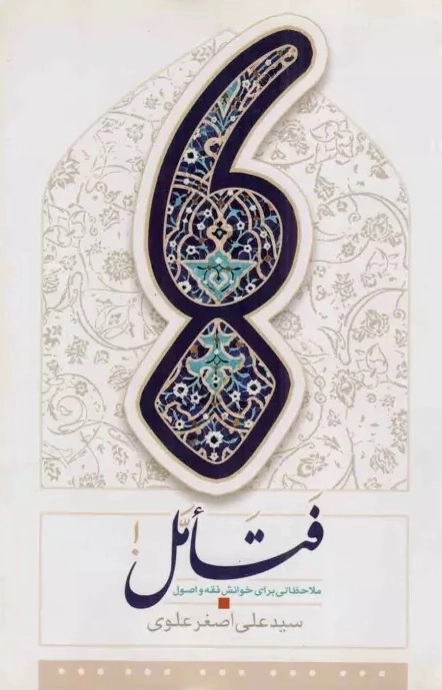 فَتَأَمَّل!
ملاحظاتی برای خوانش فقه و اصول
سیدعلی‌اصغر علوی